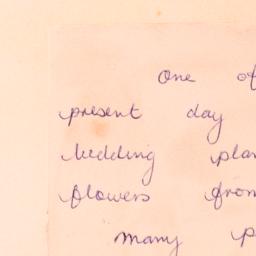 One of
present day
bedding plan
flowers from
many p